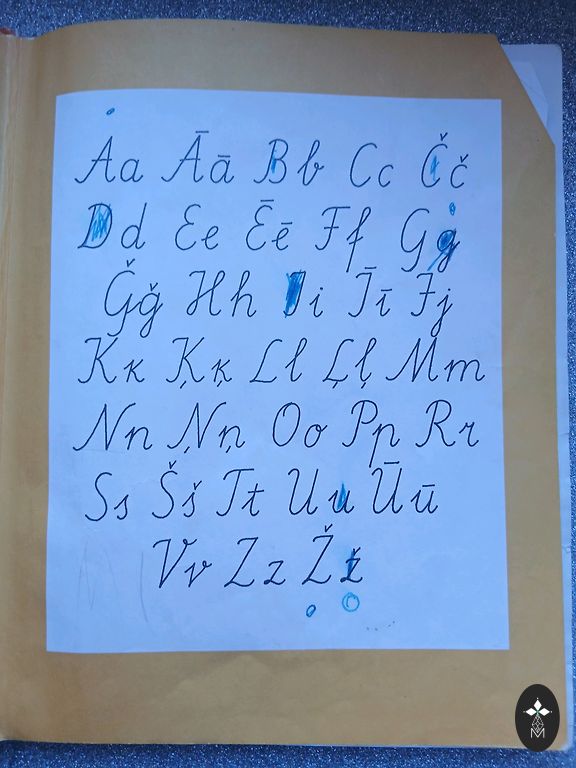 Aa Āā Bb Cc Čč
Dd Ee Ēē Ff Gg
Ǧǧ Hh Ii Īī Jj
Kk Ķķ Ll Ļļ Mm
Nn Ņņ Oo Pp Rr
Ss Šš Tt Uu Ūū
Vv Zz Žž
M